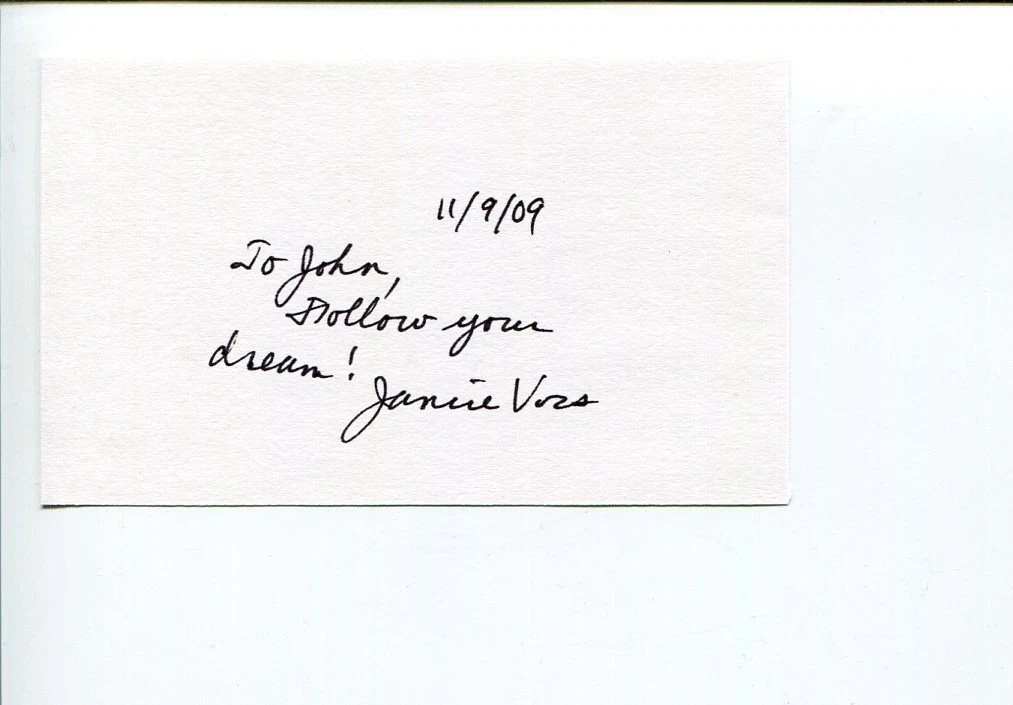 11/9/09
To John,
Follow your
dream!
Janice Voss